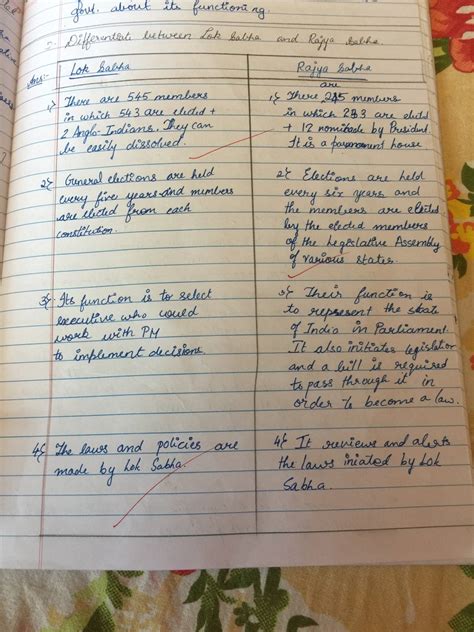 govt. about its functioning.
Differentiate between Lok Sabha and Rajya Sabha.
Ans:- Lok Sabha
1) There are 545 members
in which 543 are elected +
2 Anglo-Indians. They can
be easily dissolved.
2) General elections are held
every five years and members
are elected from each
constitution.
3) Its function is to select
executive who would
work with PM
to implement decisions
4) The laws and policies are
made by Lok Sabha.
Rajya Sabha
1) There are 245 members
in which 233 are elected
+ 12 nominated by President
It is a permanent house
2) Elections are held
every six years and
the members are elected
by the elected members
of the Legislative Assembly
of various states.
3) Their function is
to represent the state
of India in Parliament.
It also initiates legislation
and a bill is required
to pass through it in
order to become a law.
4) It reviews and alerts
the laws iniated by Lok
Sabha.